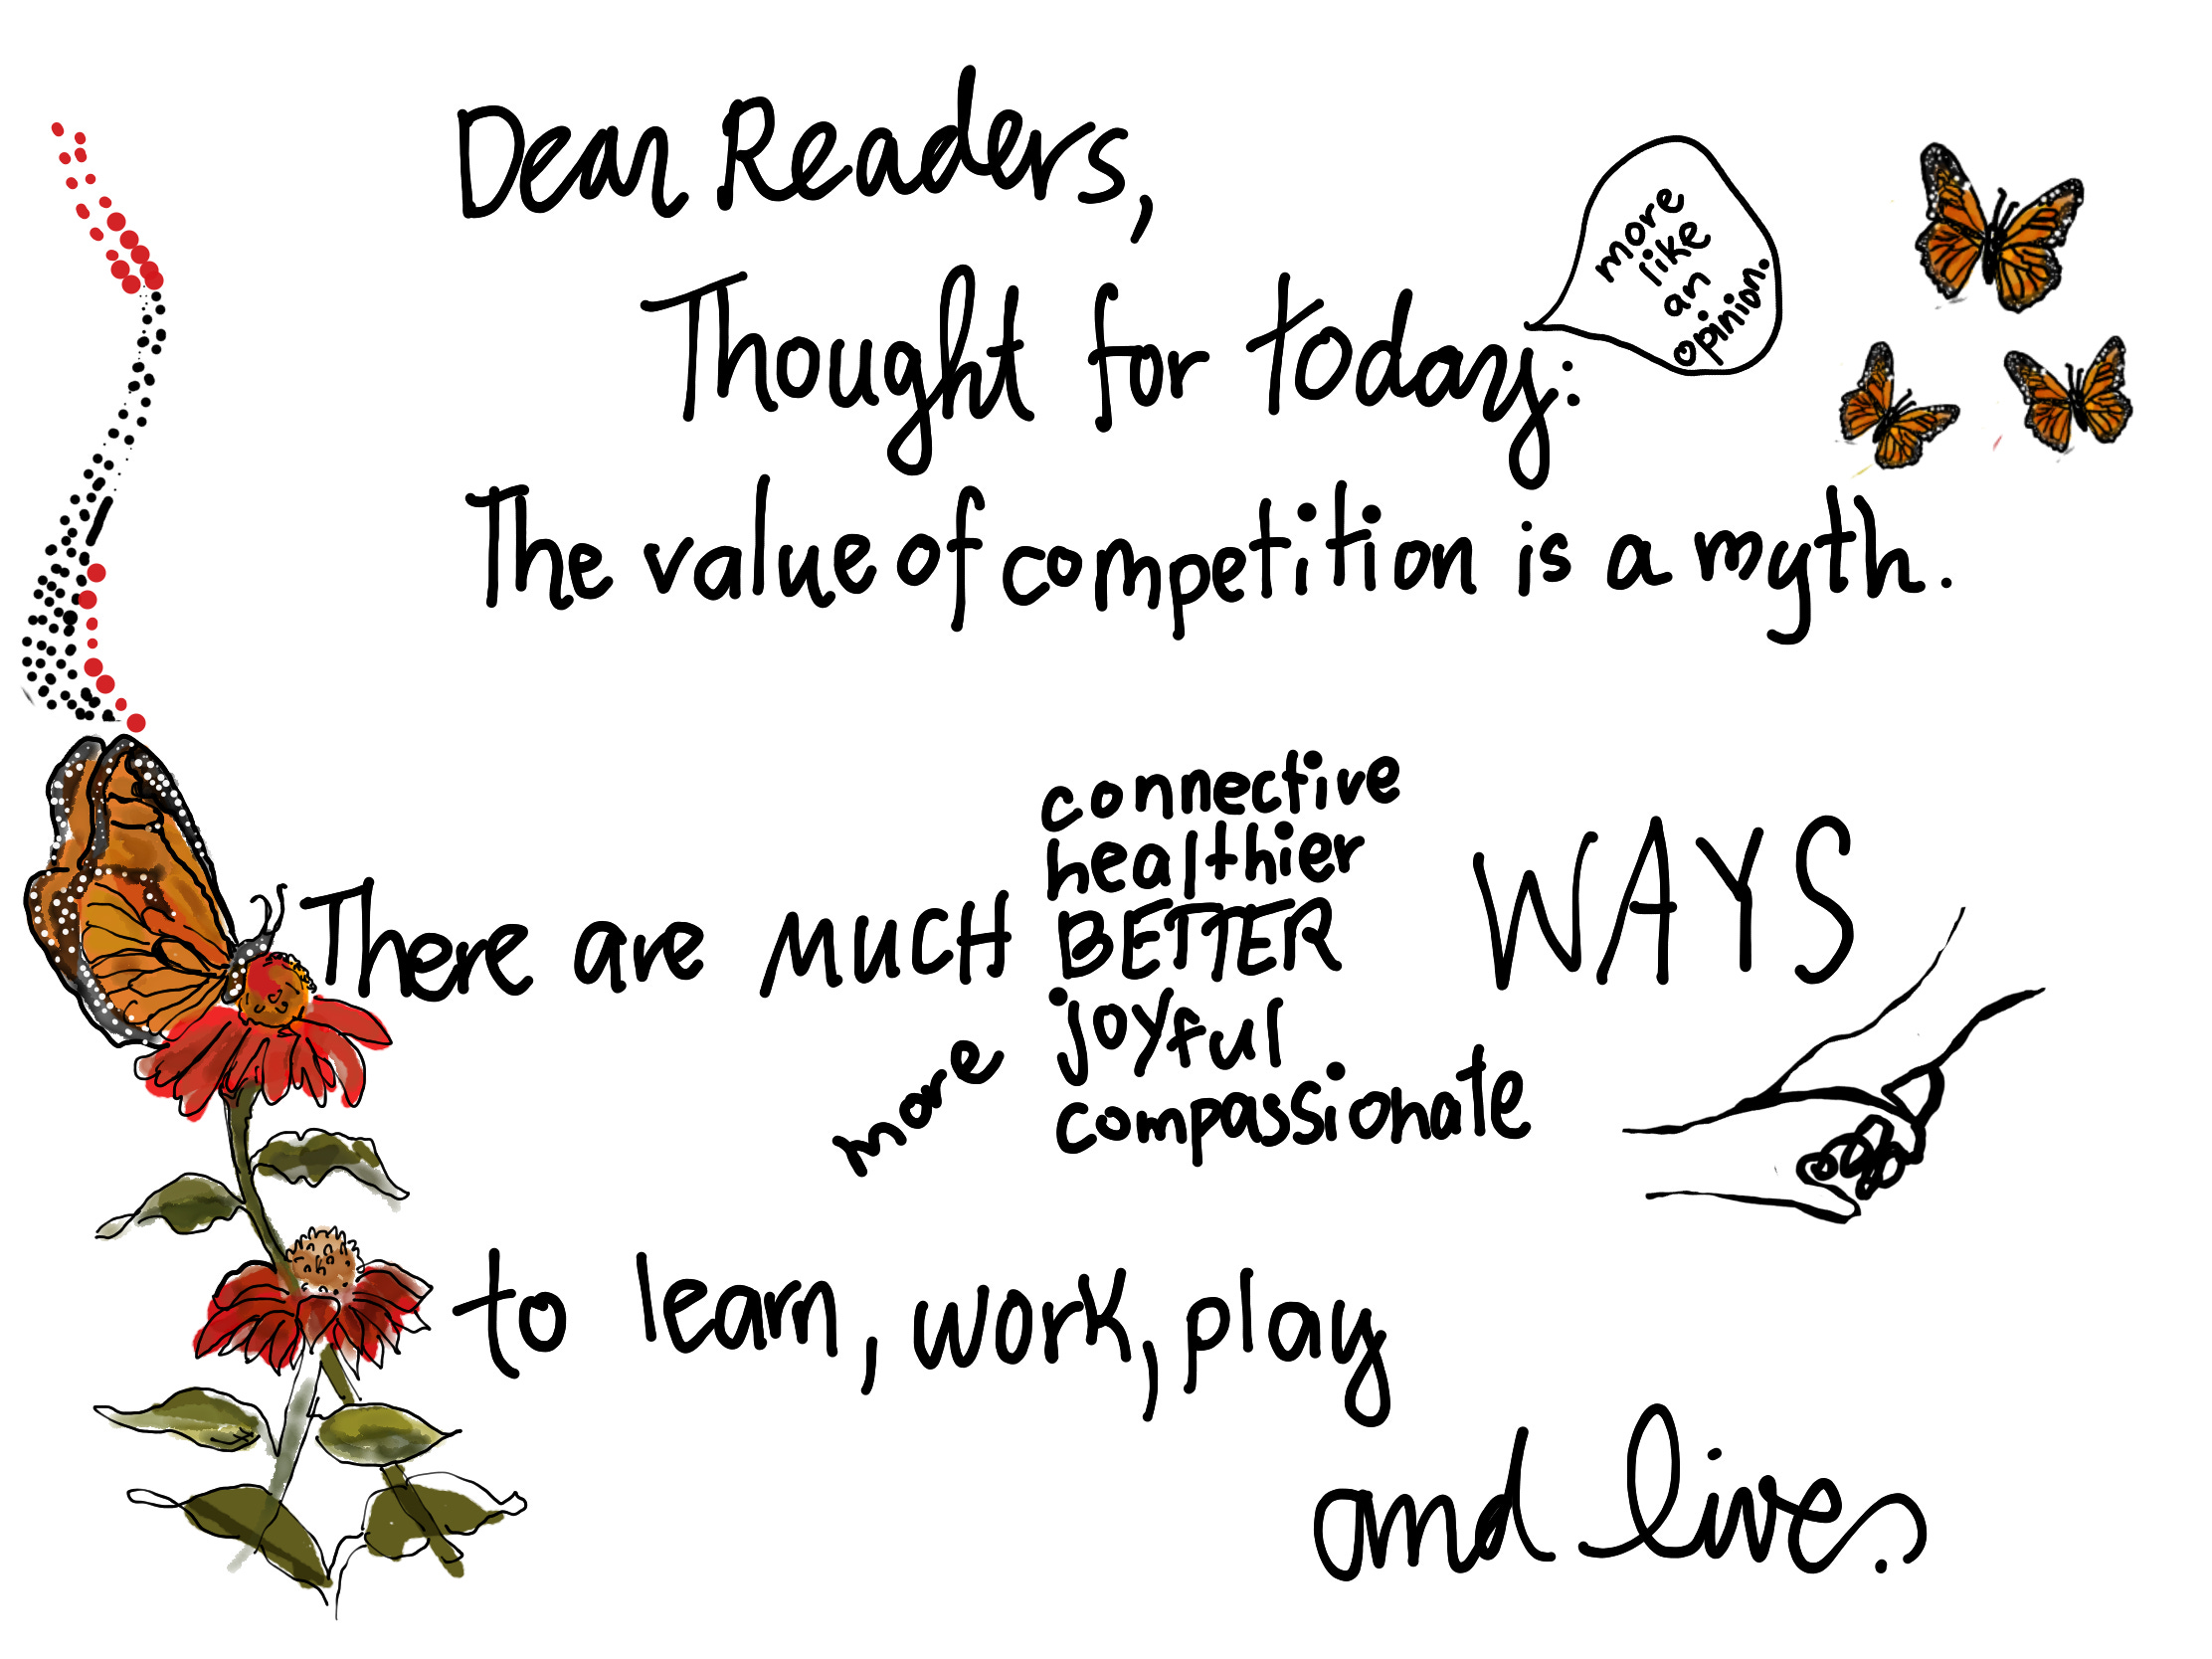 Dear Readers,
Thought for today:
more
like
an
opinion.
The value of competition is a myth.
connective
healthier
There are MUCH BETTER WAYS
joyful
more
compassionate
to learn, work, play
and live.